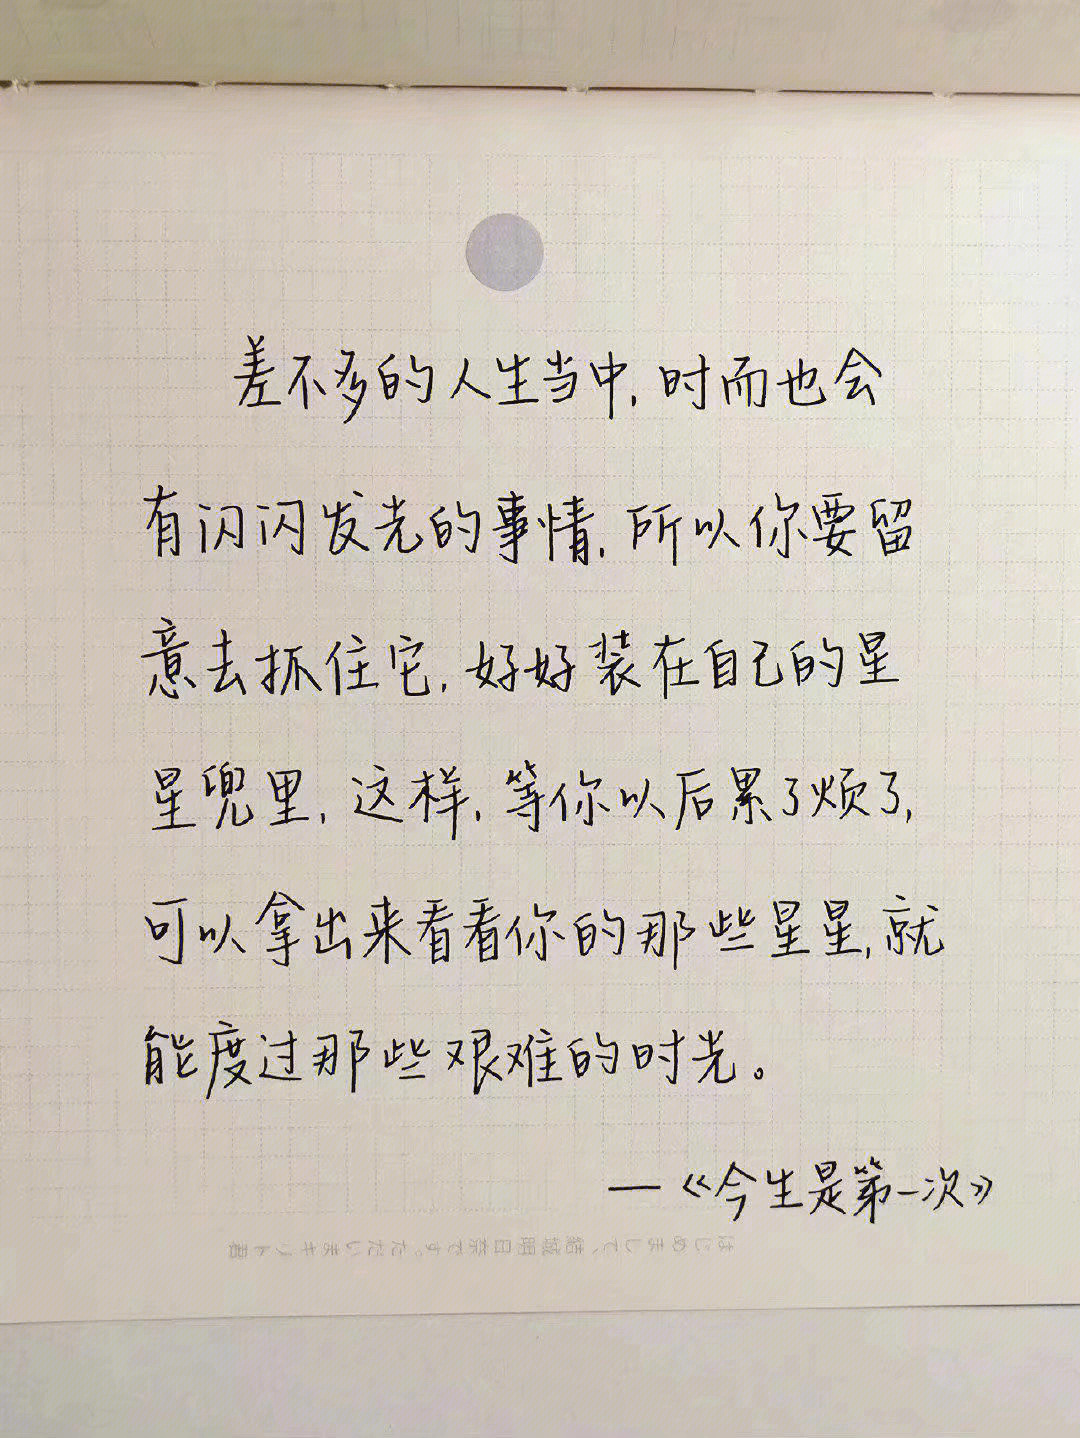 差不多的人生当中,时而也会
有闪闪发光的事情,所以你要留
意去抓住它,好好装在自己的星
星兜里,这样,等你以后累了烦了,
可以拿出来看看你的那些星星,就
能度过那些艰难的时光。
—《今生是第一次》